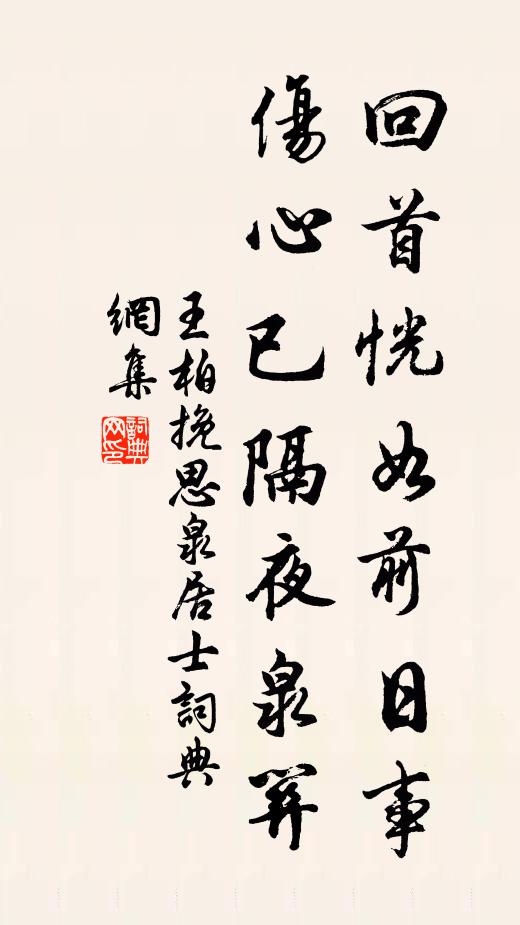 回首恍如前日事
傷心已隔夜泉關
王柏挽思泉居士詞典
網集
詞典
网印